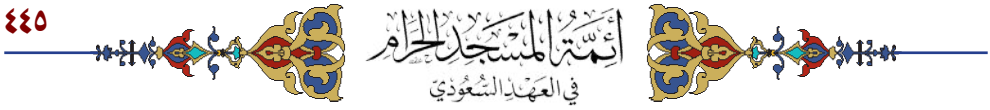 ٤٤٥
أئمة المسجد الحرام
في العهد السعودي